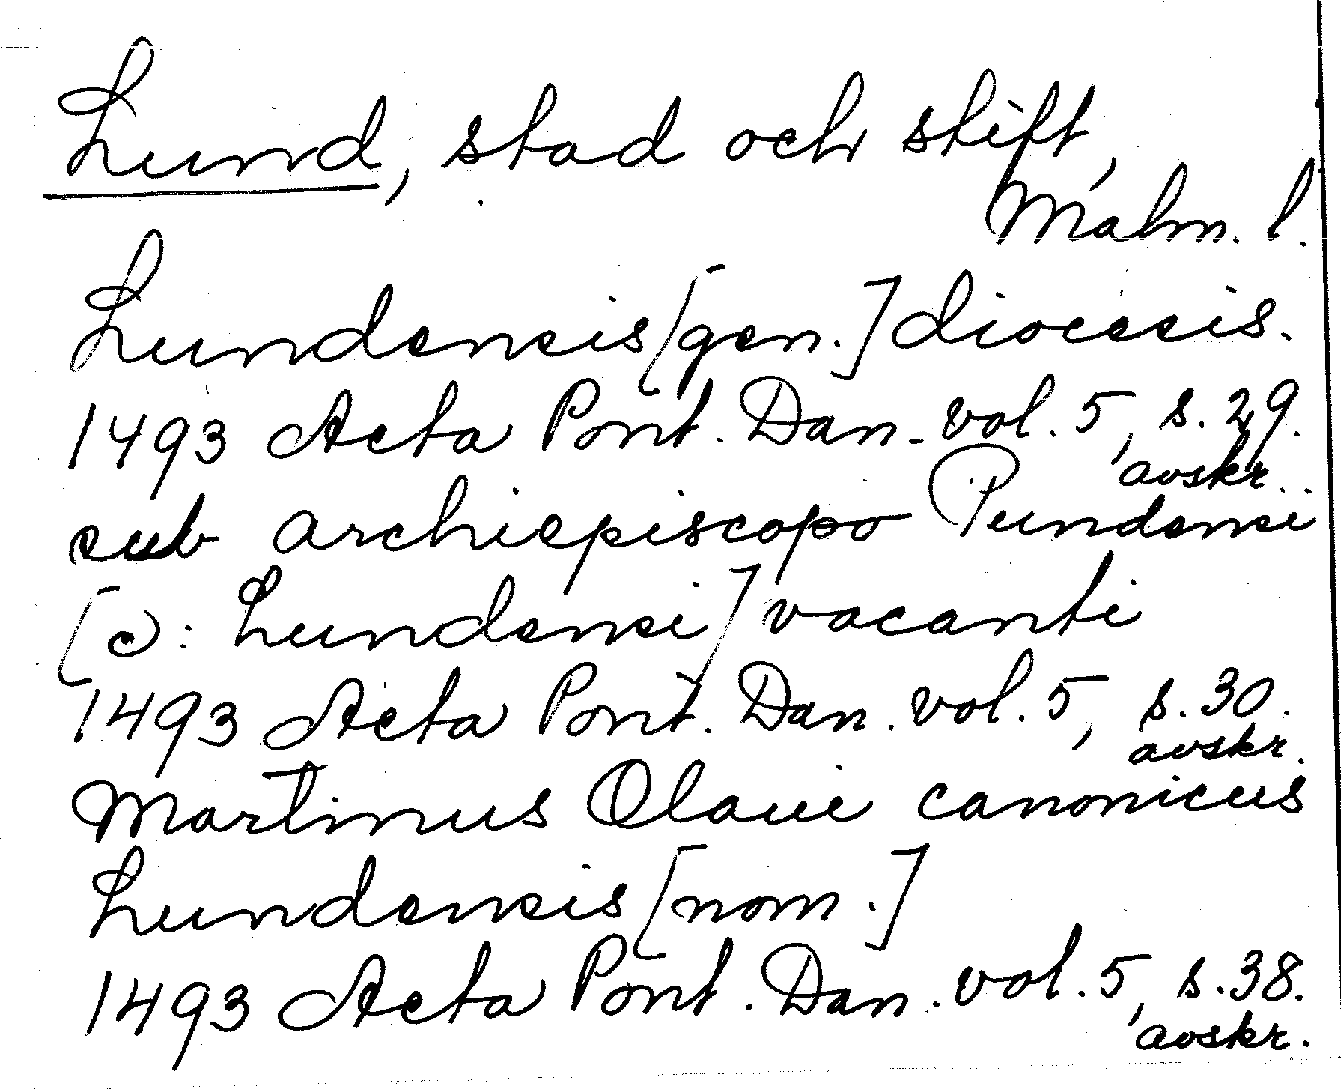 Lund, stad och stift,
Malm. l.
Lundensis [gen.] diocesis.
1493 Acta Pont. Dan. vol. 5, s. 29.
avskr.
sub archiepiscopo Pundensi
[ɔ: Lundensi] vacanti
1493 Acta Pont. Dan. vol. 5, s. 30.
avskr.
Martinus Olaui canonicus
Lundensis [nom.]
1493 Acta Pont. Dan. vol. 5, s. 38.
avskr.